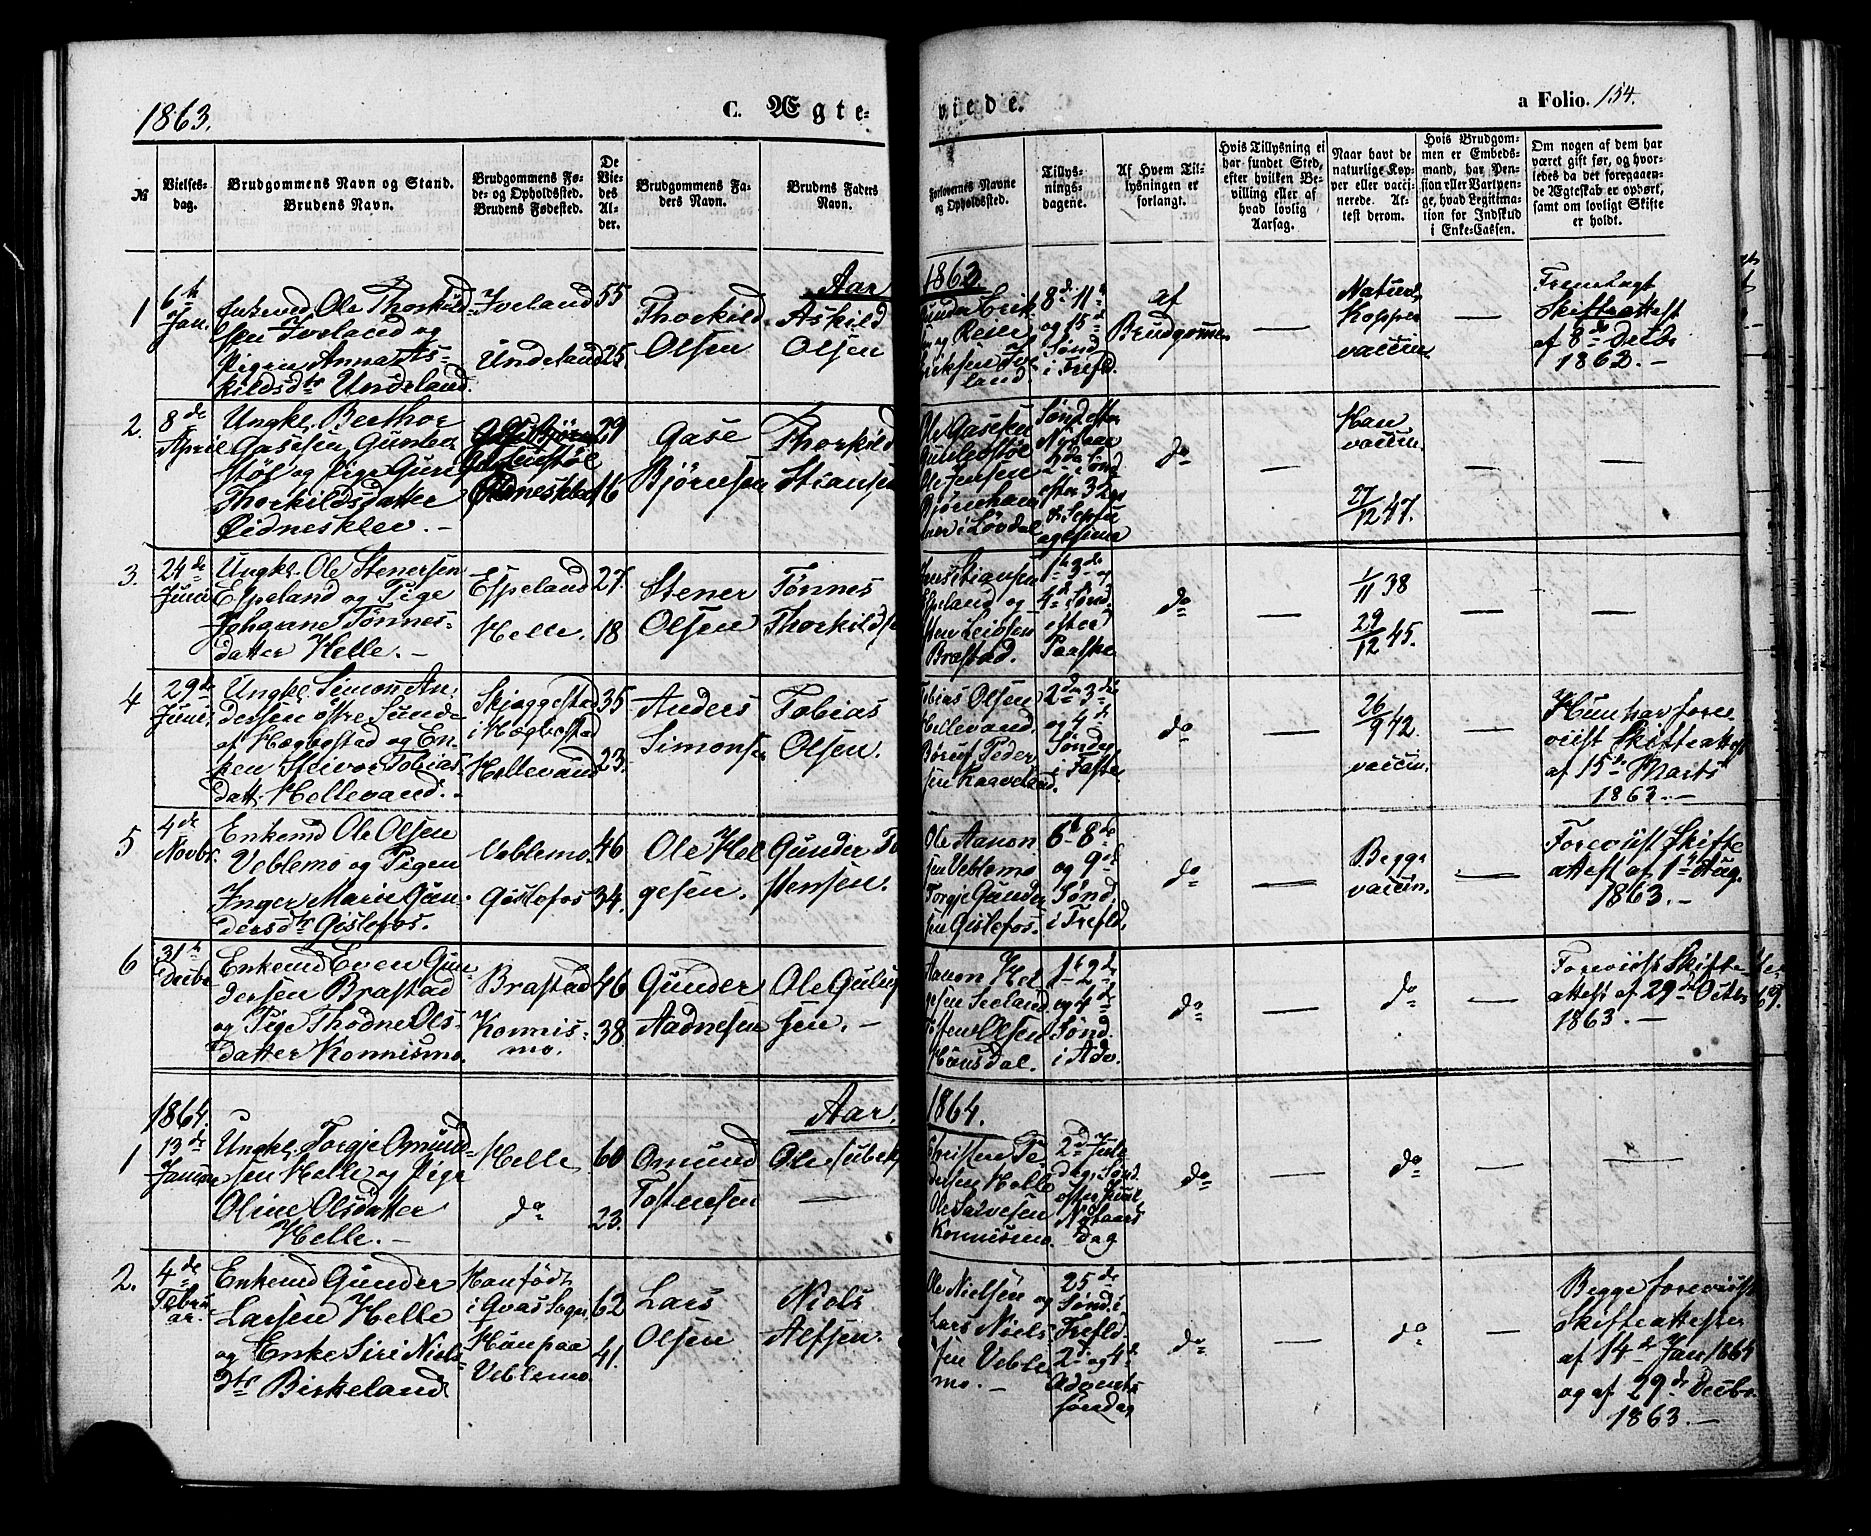 1863.
C. Ægte-
viede.
a Folio. 154.
№
Vielses-
dag.
Brudgommens Navn og Stand.
Brudens Navn.
Brudgommens Fø-
de- og Opholdssted.
Brudens Fødested.
De
Vie-
des
Al-
der.
Brudgommens Fa-
ders Navn.
Brudens Faders
Navn.
Forlovernes Navne
og Opholdssted.
Tillys-
nings-
dagene.
Af Hvem Til-
lysningen er
forlangt.
Hvis Tillysning ei
har fundet Sted,
efter hvilken Be-
villing eller af
hvad lovlig
Aarsag.
Naar havt de
naturlige Kop-
per eller vacci-
nerede. At-
test derom.
Hvis Brudgom-
men er Embeds-
mand, har Pen-
sion eller Vartpen-
ge, hvad Legitima-
tion for Indskud
i Enke-Cassen.
Om nogen af dem har
været gift før, og hvor-
ledes da det foregaaen-
de Ægteskab er ophørt,
samt om lovligt Skifte
er holdt.
Aar
1863
1
6te
Jan.
Enkemd. Ole Thorkild-
sen Iveland og
Pigen Anna As-
kildsdtr Undeland.
Iveland
Undeland
55
25.
Thorkild
Olsen
Askild
Olsen
Gunder Erik-
og Reier
Eriksen Ive-
land.
8de 11te
og 15de
Sønd.
i Trefld.
af
Brudgommen
Naturl.
Kopper
vaccin.
Fremlagt
Skifteattest
af 8de Decbr
1862. -
2.
8de
April
Ungkl. Berthor
Gasesen Gunlei
støl og Pige Guri
Thorkildsdatter
Eidnesklev. -
Gunleistøl
Eidnesklev
29
16
Gase
Bjørnsen
Thorkild
Stiansen
Ole Gasesen
Gunleistøl
Ole Jensen
Sønd. efter
Nytaar
do
Han
vaccin.
27/12 47.
3.
24de
Juni
Ungkl. Ole Stenersen
Espeland og Pige
Johanne Tønnes-
datter Helle. -
Espeland
Helle.
27.
18
Stener
Olsen
Tønnes
Thorkilds
Stiansen
Espeland og
Bræstad.
1te 3de og
4de Sønd.
efter
Paaske
do
1/11 38
29/12 45.
4
29de
Juni.
Ungkl. Simon An-
dersen østre Sunde
af Hægbostad og En-
ken Steivor Tobias-
datt. Hellevand. -
Skjeggestad
i Hægbostad
Hellevand
35
23.
Anders
Simonsen
Tobias
Olsen.
Tobias Olsen
Hellevand.
Børuf Peder
sen Kaaveland.
2den 3die
og 4de
Sønda
i Faste
do
26/9 42
vaccin.
Hun har fore-
viist Skifteattest
af 15de Marts
1863. -
5
4de
Novbr.
Enkemd Ole Olsen
Veblemo og Pigen
Inger Marie Gun-
dersdtr Gislefos.
Veblemo.
Gislefos
46
34.
Ole Hel
gesen.
Gunder To
stensen.
Ole Aanon
sen Veblemo
Torgje Gunder
sen Gislefos.
6te 8de
og 9de
Sønd.
i Trefld.
do
Begge
vaccin.
Foreviist Skifte
attest af 1ste Aug.
1863. -
6
31te
Decbr
Enkemd Even Gun-
dersen Brastad
og Pige Thodne Ols-
datter Konnismo.
Brastad
Konnis-
mo.
46
38.
Gunder
Aadnesen
Ole Guluf
sen. -
Aanon Hel
gesen Seeland
Olsen
1te 2de
og 4de
Sønd.
i Adv.
do
do
Foreviist Skifte
attest af 29de Octbr
1863. -
1864.
Aar.
1864.
1
13de
Januar
Ungkl. Torgje Omund-
sen Helle og Pige
Oline Olsdatter
Helle. -
Helle
do
60
23.
Omund
Tostensen
Ole
Christen Pe
dersen Helle
Ole Salvesen
Konnismo.
2den Jule
dag, Sønd.
efter Juul
Nytaars
dag
do
do
2.
4de
Februar.
Enkemd Gunder
Larsen Helle
og Enke Siri Niels-
dtr Birkeland
Han født
i Qvas Sogn
Hun paa
Veblemo.
62
41.
Lars
Olsen
Niels
Alfsen.
Ole Nielsen
og
Lars Niels
sen Veble
mo. -
25de
Sønd. i
Trefld.
2den og 4de
Advents
søndag
do
do
Begge foreviist
Skifteattester
af 14de Jan 1864
og af 29de Decbr.
1863. -